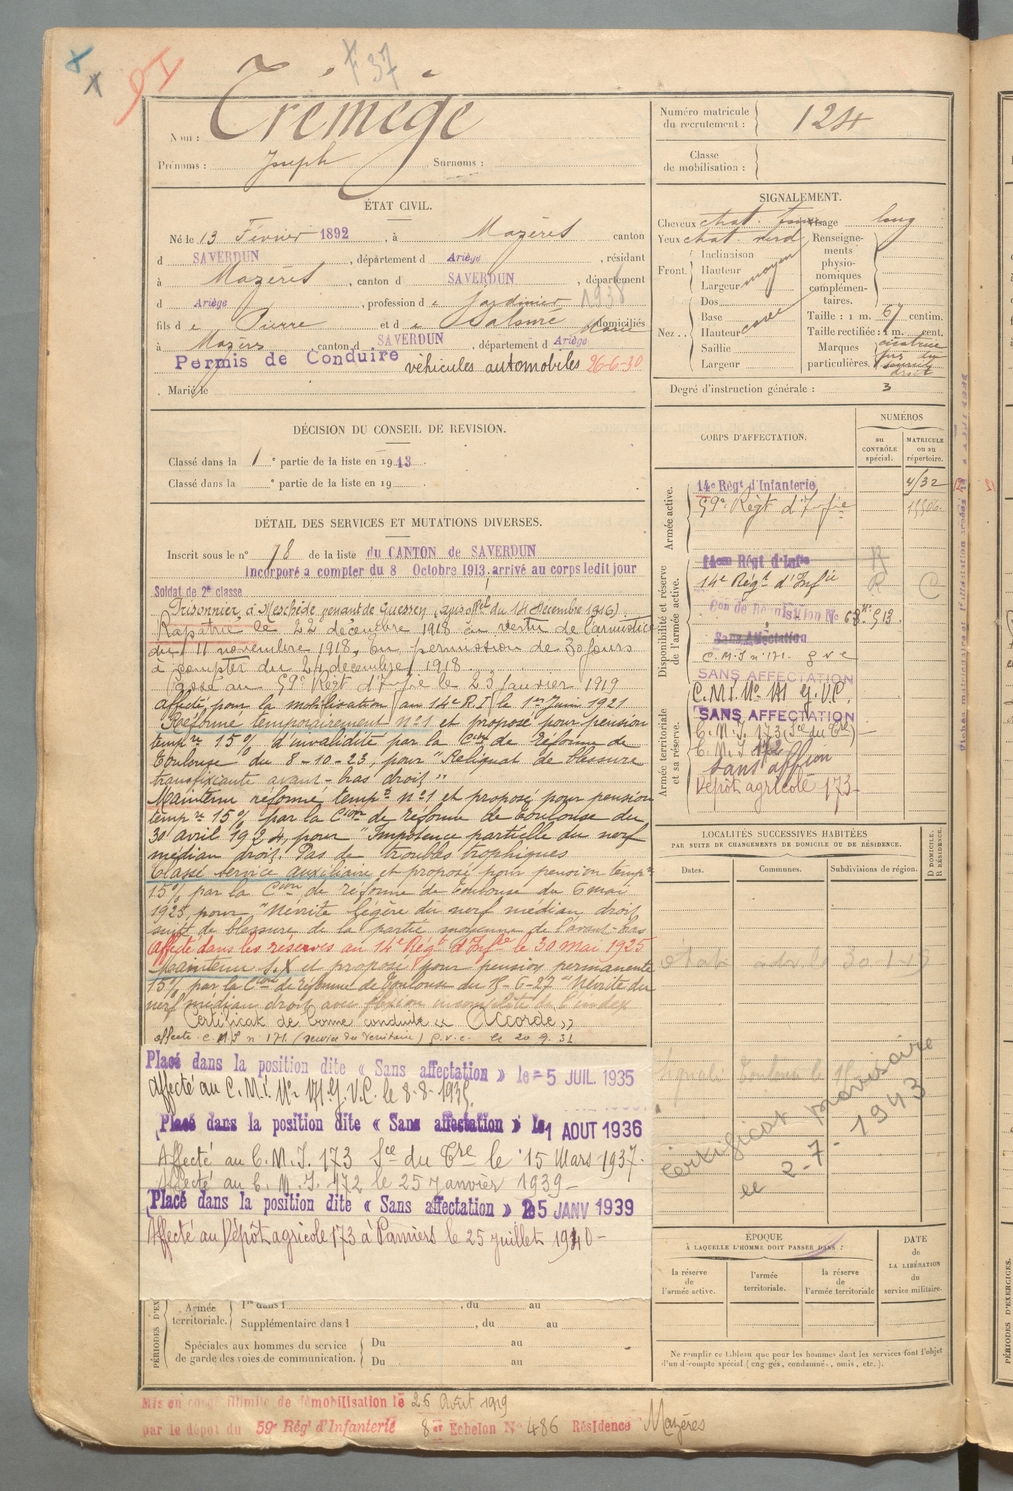 x 37
Nom : Trémège
Prénoms : Joseph Surnoms :
Numéro matricule du recrutement : 124
Classe de mobilisation :
ÉTAT CIVIL.
Né le 13 Février 1892, à Mazères canton
d SAVERDUN, département d Ariège, résidant
à Mazères, canton d SAVERDUN, département
d Ariège, profession de Jardinier
fils de Pierre et de domiciliés
à Mazères, canton d SAVERDUN, département d Ariège
Permis de Conduire véhicules automobiles 26-6-30
Marié le
SIGNALEMENT.
Cheveux chat. Visage long
Yeux chat. verd
Front. Inclinaison
Hauteur
Largeur moyen
Nez. Dos
Base
Hauteur cave
Saillie
Largeur
Renseignements physionomiques complémentaires.
Taille : 1 m. 67 centim.
Taille rectifiée : 1 m. cent.
Marques particulières. cicatrice
droit
Degré d'instruction générale : 3
DÉCISION DU CONSEIL DE REVISION.
Classé dans la 1e partie de la liste en 1913.
Classé dans la e partie de la liste en 19
CORPS D'AFFECTATION.
NUMÉROS
au CONTRÔLE spécial.
MATRICULE ou au répertoire.
Armée active.
14e Régt d'Infanterie
59e Régt d'Inf ie
Disponibilité et réserve de l'armée active.
14e Régt d'Infie
14e Régt d'Infie R C
Sans Affectation
C.M.I n° 171. g v c
SANS AFFECTATION
C.M.I. N° 171 G.V.C.
Armée territoriale et sa réserve.
SANS AFFECTATION
C.M.I. 173 (Sce du Tre)
C.M.I. 172
Sans affion
Dépôt agricole 173
DÉTAIL DES SERVICES ET MUTATIONS DIVERSES.
Inscrit sous le n° 78 de la liste du CANTON de SAVERDUN
Incorporé a compter du 8 Octobre 1913. arrivé au corps ledit jour
Soldat de 2e classe
Prisonnier à Meschède venant de (avis du 14 décembre 1916).
Rapatrié le 22 décembre 1918 en vertu de l'armistice
du 11 novembre 1918, en permission de 30 jours
à compter du 24 décembre 1918.
Passé au 59e Régt d'Inf ie le 23 Janvier 1919
affecté, pour la mobilisation, au 14e R.I. le 1er Juin 1921
Réformé temporairement n°1 et proposé pour pension
tempre 15% d'invalidité par la Cion de Réforme de
Toulouse du 8-10-23, pour "Reliquat de blessure
transfixiante avant-bras droit"
Maintenu réformé tempre n°1 et proposé pour pension
tempre 15% par la Cion de réforme de Toulouse du
30 avril 1924, pour "Impotence partielle du nerf
médian droit. Pas de troubles trophiques
Classé service auxiliaire et proposé pour pension tempre
15% par la Cion de réforme de Toulouse du 6 mai
1925, pour "Névrite légère du nerf médian droit
suite de blessure de la partie moyenne de l'avant-bras
Affecté dans les réserves au 14e Régt d'Infie le 30 mai 1925
Maintenu S.X et proposé pour pension permanente
15% par la Cion de réforme de Toulouse du -6-27 "Névrite du
nerf médian droit avec flexion incomplète de l'index
Certificat de bonne conduite « Accordé »
affecté C.M.I n° 171. (service du territoire) g.v.c. le 20.9.31
Placé dans la position dite « Sans affectation » le 5 JUIL 1935
Affecté au C.M.I. N° 171 G.V.C. le 8-8-1935.
Placé dans la position dite « Sans affectation » le 1 AOUT 1936
Affecté au C.M.I. 173 Sce du Tre le 15 Mars 1937.
Affecté au C.M.I. 172 le 25 Janvier 1939
Placé dans la position dite « Sans affectation » 25 JANV 1939
Affecté au Dépôt agricole 173 à Pamiers le 25 juillet 1940
LOCALITÉS SUCCESSIVES HABITÉES
PAR SUITE DE CHANGEMENTS DE DOMICILE OU DE RÉSIDENCE.
Dates. Communes. Subdivisions de région. D DOMICILE. R RÉSIDENCE.
Certificat provisoire
le 2-7-1943
ÉPOQUE
À LAQUELLE L'HOMME DOIT PASSER DANS :
la réserve de l'armée active. l'armée territoriale. la réserve de l'armée territoriale
DATE de LA LIBÉRATION du service militaire.
Ne remplir ce tableau que pour les hommes dont les services font l'objet
d'un décompte spécial (engagés, condamnés, omis, etc.).
Armée territoriale. 1re dans l , du au
Supplémentaire dans l , du au
Spéciales aux hommes du service Du au
de garde des voies de communication. Du au
Mis en congé illimité de démobilisation le 26 Août 1919
par le dépôt du 59e Régt d'Infanterie 8e Echelon N° 486 Résidence Mazères
PÉRIODES D'EXERCICES.